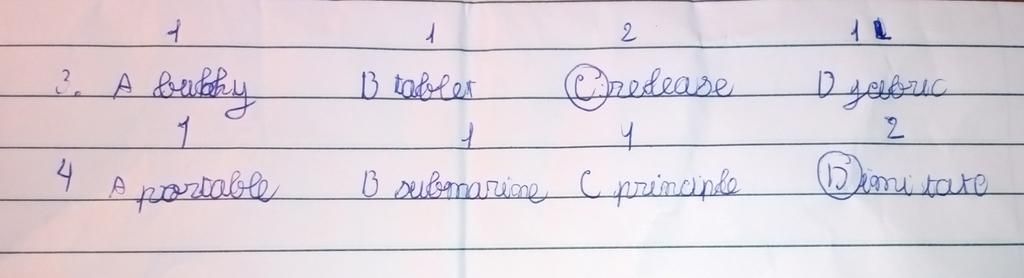 1 1 2 1
3. A bukky B tablet C release D fabric
1 1 1 2
4 A portable B submarine C principle D imitate